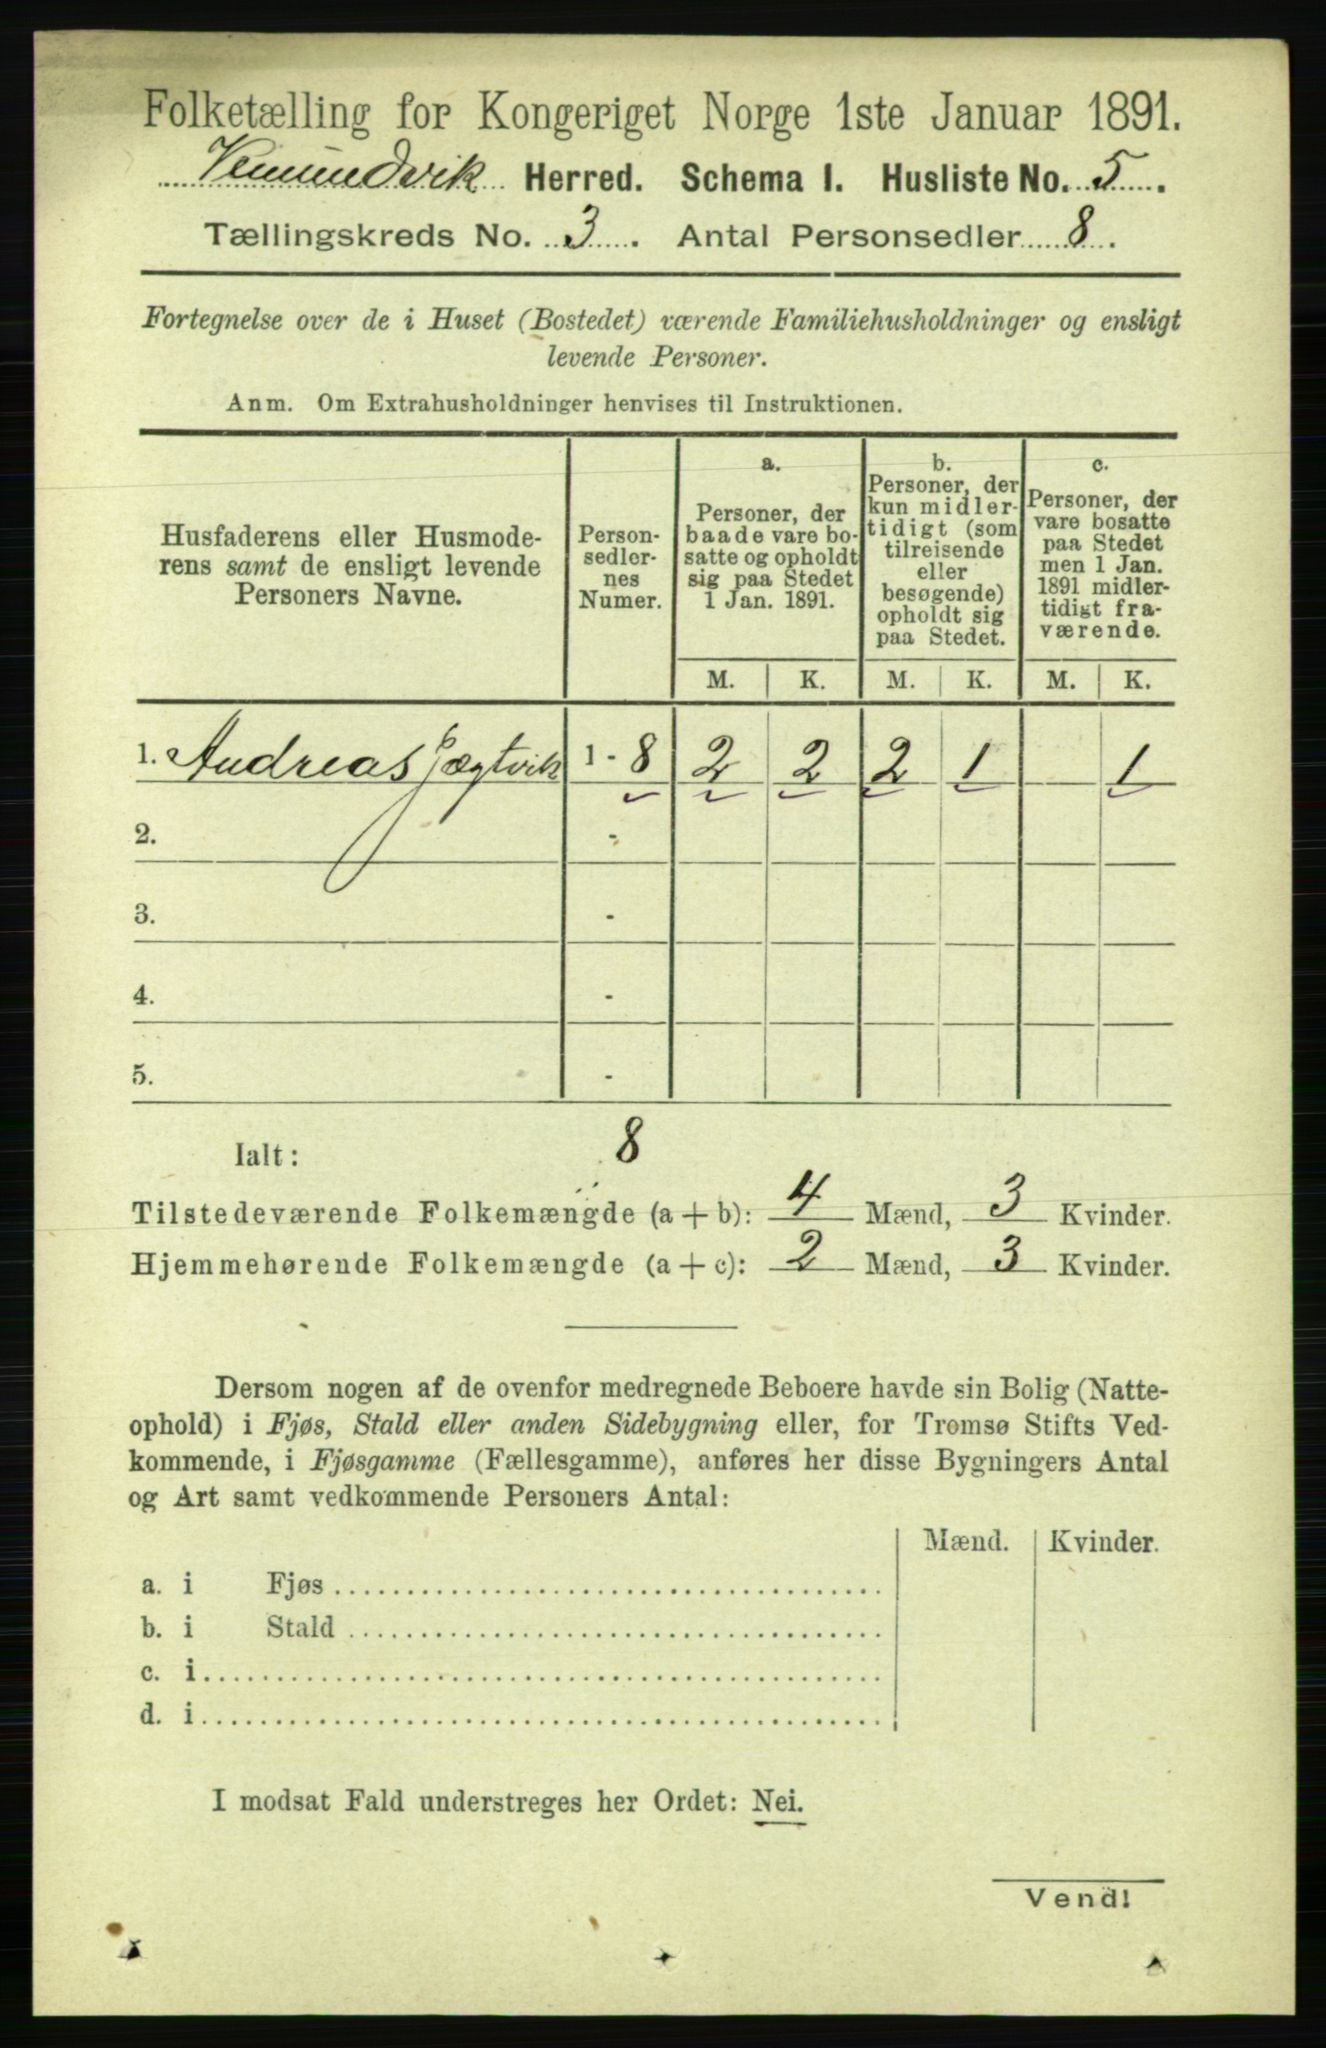 Folketælling for Kongeriget Norge 1ste Januar 1891.
Vemundvik Herred. Schema I. Husliste No. 5.
Tællingskreds No. 3. Antal Personsedler 8.
Fortegnelse over de i Huset (Bostedet) værende Familiehusholdninger og ensligt
levende Personer.
Anm. Om Extrahusholdninger henvises til Instruktionen.
Husfaderens eller Husmode-
rens samt de ensligt levende
Personers Navne.
Person-
sedler-
nes
Numer.
a.
Personer, der
baade vare bo-
satte og opholdt
sig paa Stedet
1 Jan. 1891.
b.
Personer, der
kun midler-
tidigt (som
tilreisende
eller
besøgende)
opholdt sig
paa Stedet.
c.
Personer, der
vare bosatte
paa Stedet
men 1 Jan.
1891 midler-
tidigt fra-
værende.
M. K. M. K. M. K.
1. Andreas Jægtvik 1 - 8 2 2 2 1 1
2. -
3. -
4. -
5. -
Ialt: 8
Tilstedeværende Folkemængde (a + b): 4 Mænd, 3 Kvinder.
Hjemmehørende Folkemængde (a + c): 2 Mænd, 3 Kvinder.
Dersom nogen af de ovenfor medregnede Beboere havde sin Bolig (Natte-
ophold) i Fjøs, Stald eller anden Sidebygning eller, for Tromsø Stifts Ved-
kommende, i Fjøsgamme (Fællesgamme), anføres her disse Bygningers Antal
og Art samt vedkommende Personers Antal:
Mænd. Kvinder.
a. i Fjøs
b. i Stald
c. i
d. i
I modsat Fald understreges her Ordet: Nei.
Vend!